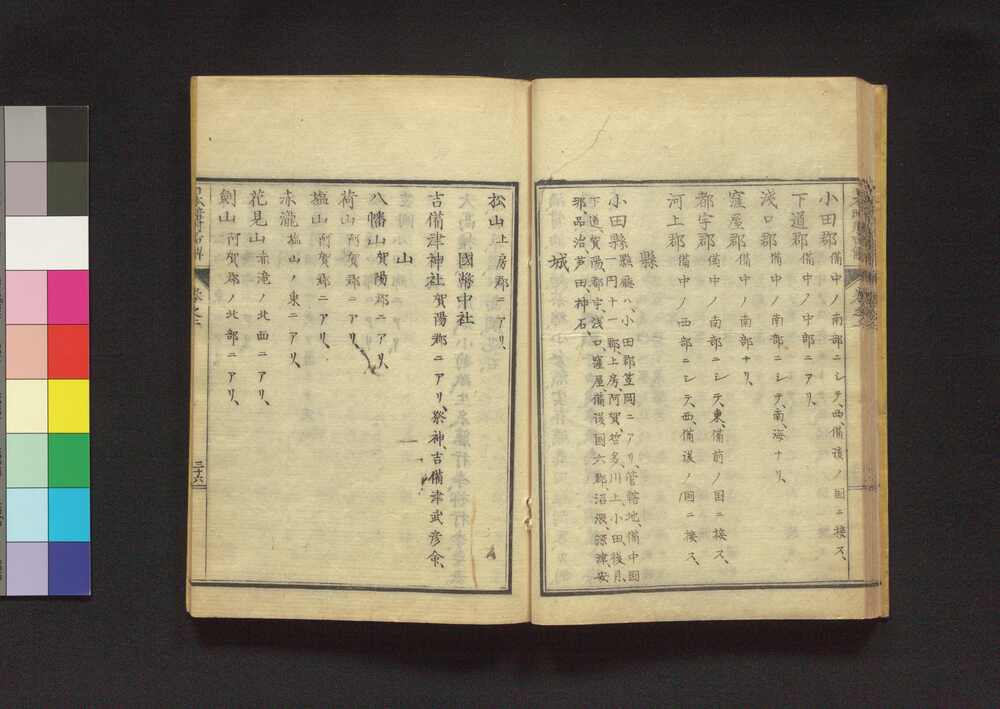 小田郡 備中ノ南部ニシテ、西、備後ノ国ニ接ス、
下道郡 備中ノ中部ニアリ、
浅口郡 備中ノ南部ニシテ、南、海ナリ、
窪屋郡 備中ノ南部ナリ、
都宇郡 備中ノ南部ニシテ、東、備前ノ国ニ接ス、
河上郡 備中ノ西部ニシテ、西、備後ノ国ニ接ス、
縣
小田縣 縣廳ハ、小田郡笠岡ニアリ、管轄地、備中国
一円十一郡、上房、阿賀、哲多、川上、小田、後月、
下道、賀陽、都宇、浅口、窪屋、備後国六郡、沼隈、深津、安
那、品治、芦田、神石、
城
松山 上房郡ニアリ、
國幣中社
吉備津神社 賀陽郡ニアリ、祭神、吉備津武彦命、
山
八幡山 賀陽郡ニアリ、
荷山 阿賀郡ニアリ、
塩山 阿賀郡ニアリ、
赤瀧 塩山ノ東ニアリ、
花見山 赤滝ノ北面ニアリ、
剣山 阿賀郡ノ北部ニアリ、
三十六